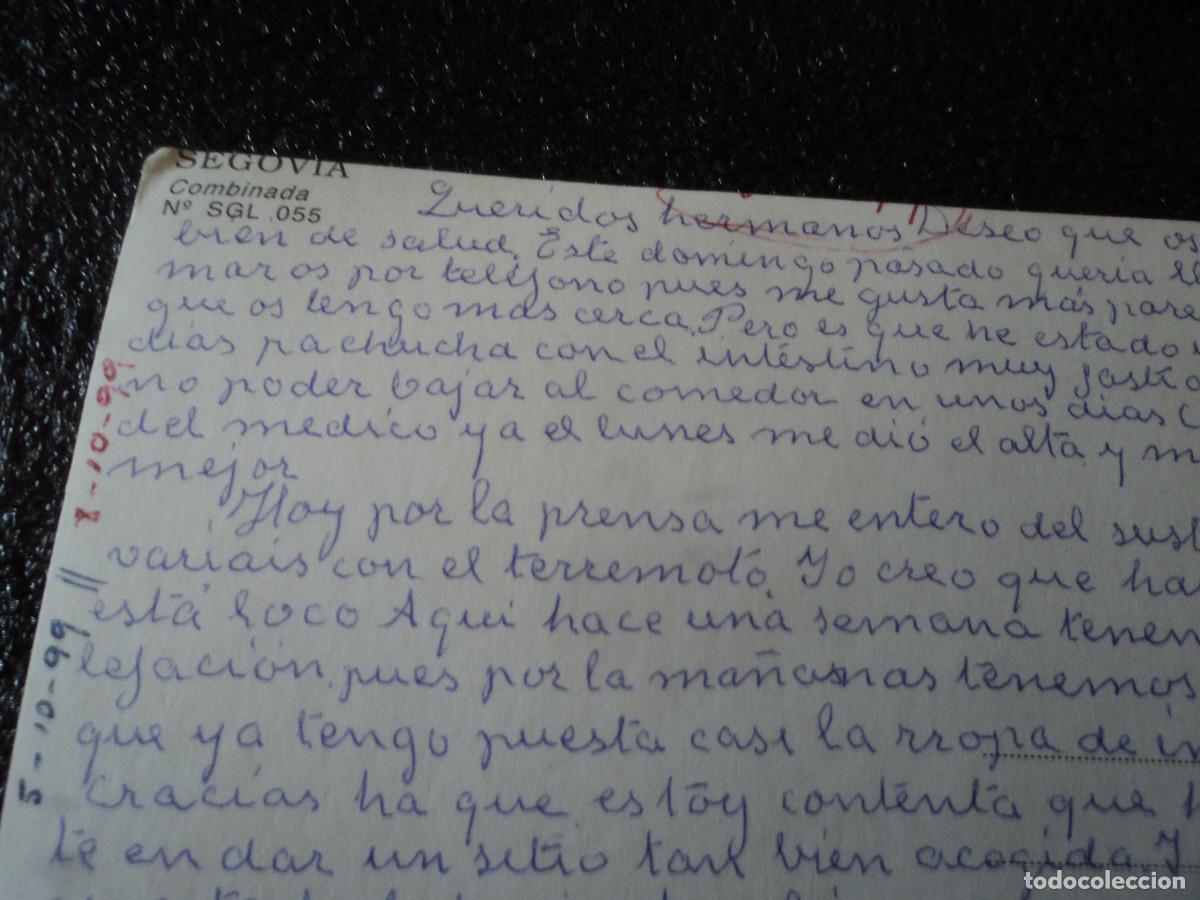 SEGOVIA
Combinada
Nº SGL .055
Queridos hermanos Deseo que os
bien de salud. Este domingo pasado queria ll
maros por teléfono pues me gusta más pare
que os tengo mas cerca. Pero es que he estado
días pachucha con el intestino muy
no poder bajar al comedor en unos dias
del medico ya el lunes me dió el alta y m
mejor
Hoy por la prensa me entero del sust
variais con el terremoto. Yo creo que ha
está loco Aqui hace una semana tenem
lefación, pues por la mañanas tenemos
que ya tengo puesta casi la rropa de i
cracias ha que estoy contenta que
te en dar un sitio tan bien acogida Y
8-10-99
5-10-99
todocoleccion